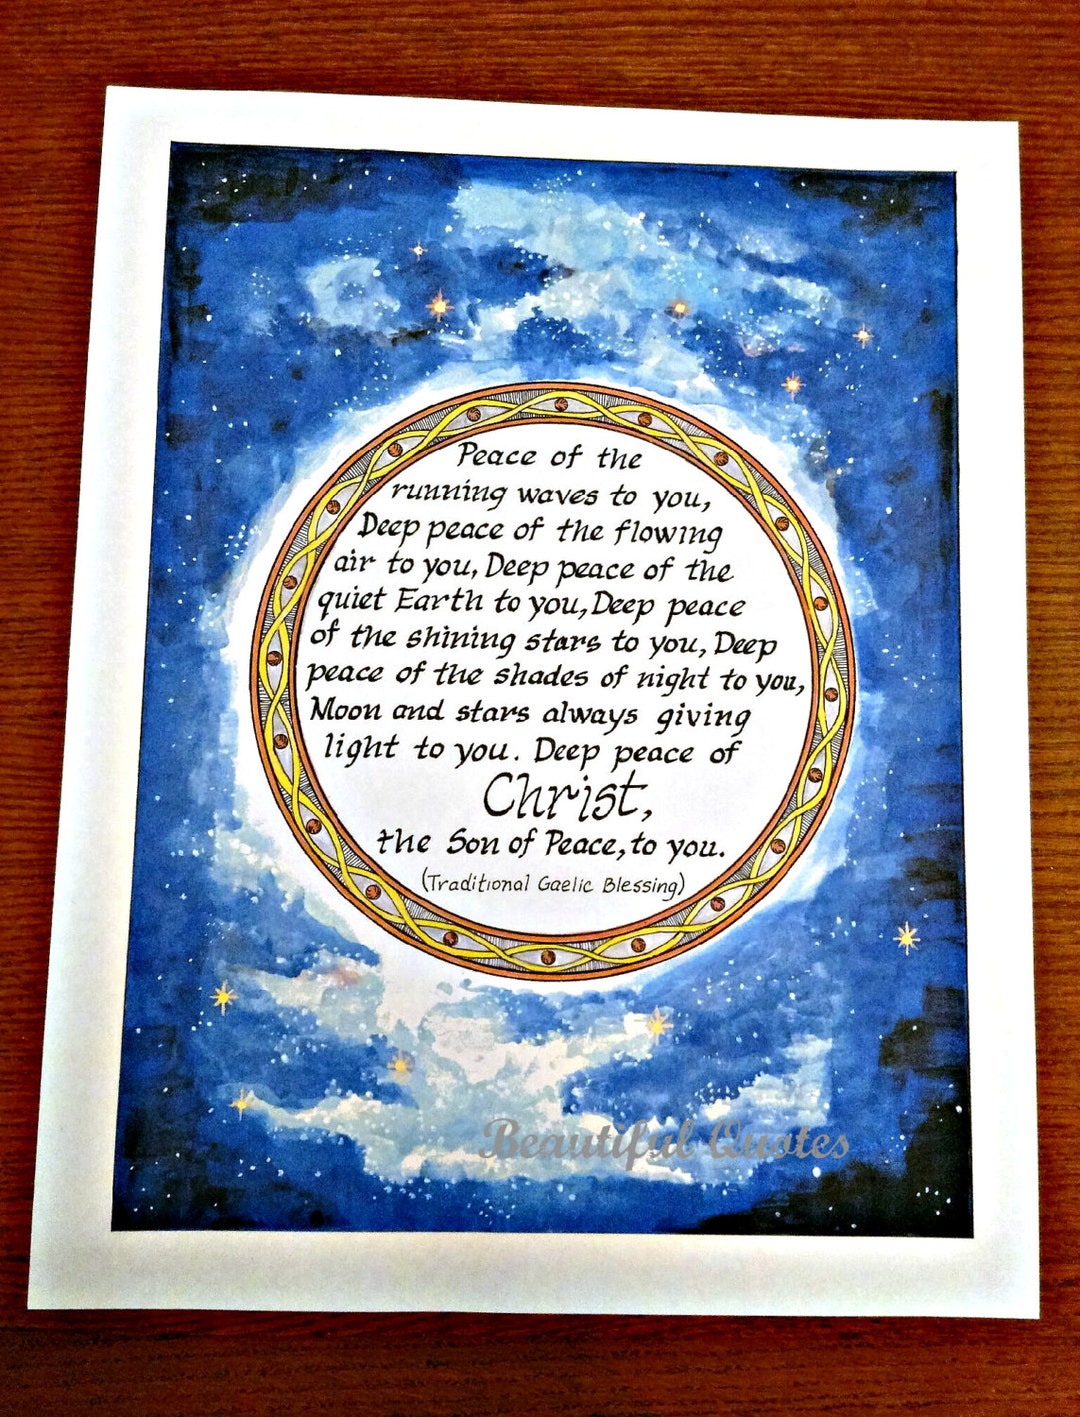 Peace of the
running waves to you,
Deep peace of the flowing
air to you, Deep peace of the
quiet Earth to you, Deep peace
of the shining stars to you, Deep
peace of the shades of night to you,
Moon and stars always giving
light to you. Deep peace of
Christ,
the Son of Peace, to you.
(Traditional Gaelic Blessing)
Beautiful Quotes